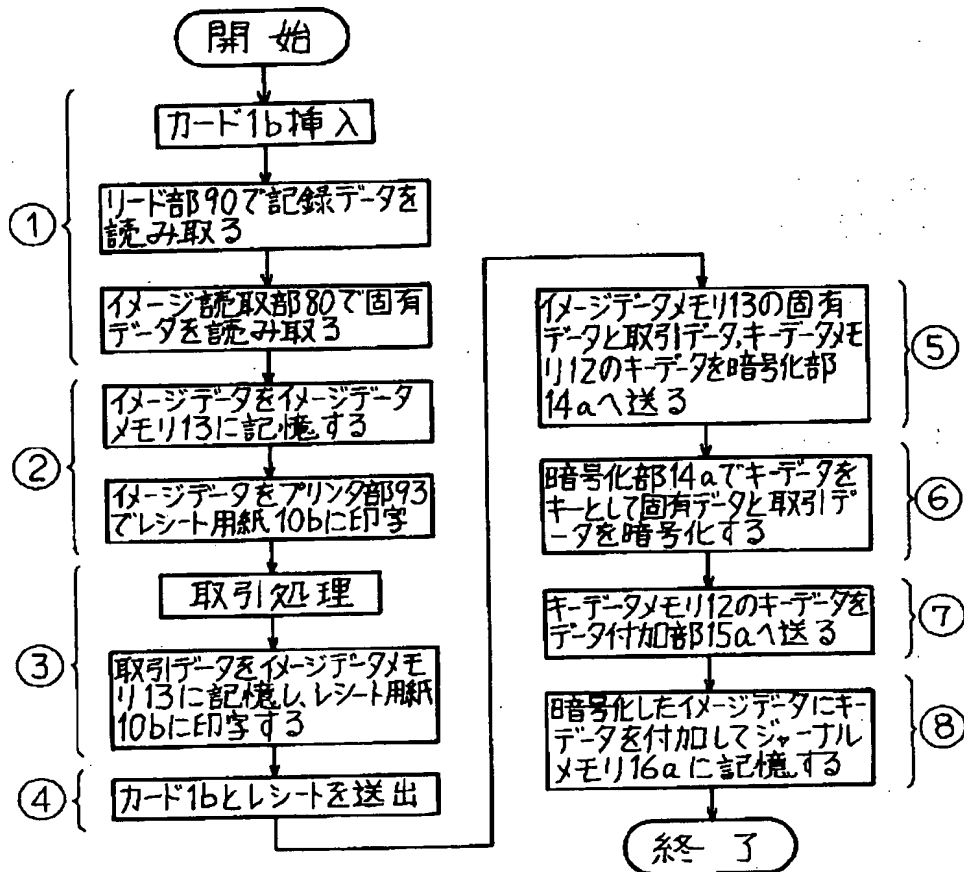 開始
①
カード1b挿入
リード部90で記録データを
読み取る
イメージ読取部80で固有
データを読み取る
②
イメージデータをイメージデータ
メモリ13に記憶する
イメージデータをプリンタ部93
でレシート用紙10bに印字
③
取引処理
取引データをイメージデータメモ
リ13に記憶し、レシート用紙
10bに印字する
④
カード1bとレシートを送出
⑤
イメージデータメモリ13の固有
データと取引データ,キーデータメモ
リ12のキーデータを暗号化部
14aへ送る
⑥
暗号化部14aでキーデータを
キーとして固有データと取引デ
ータを暗号化する
⑦
キーデータメモリ12のキーデータを
データ付加部15aへ送る
⑧
暗号化したイメージデータにキー
データを付加してジャーナル
メモリ16aに記憶する
終了